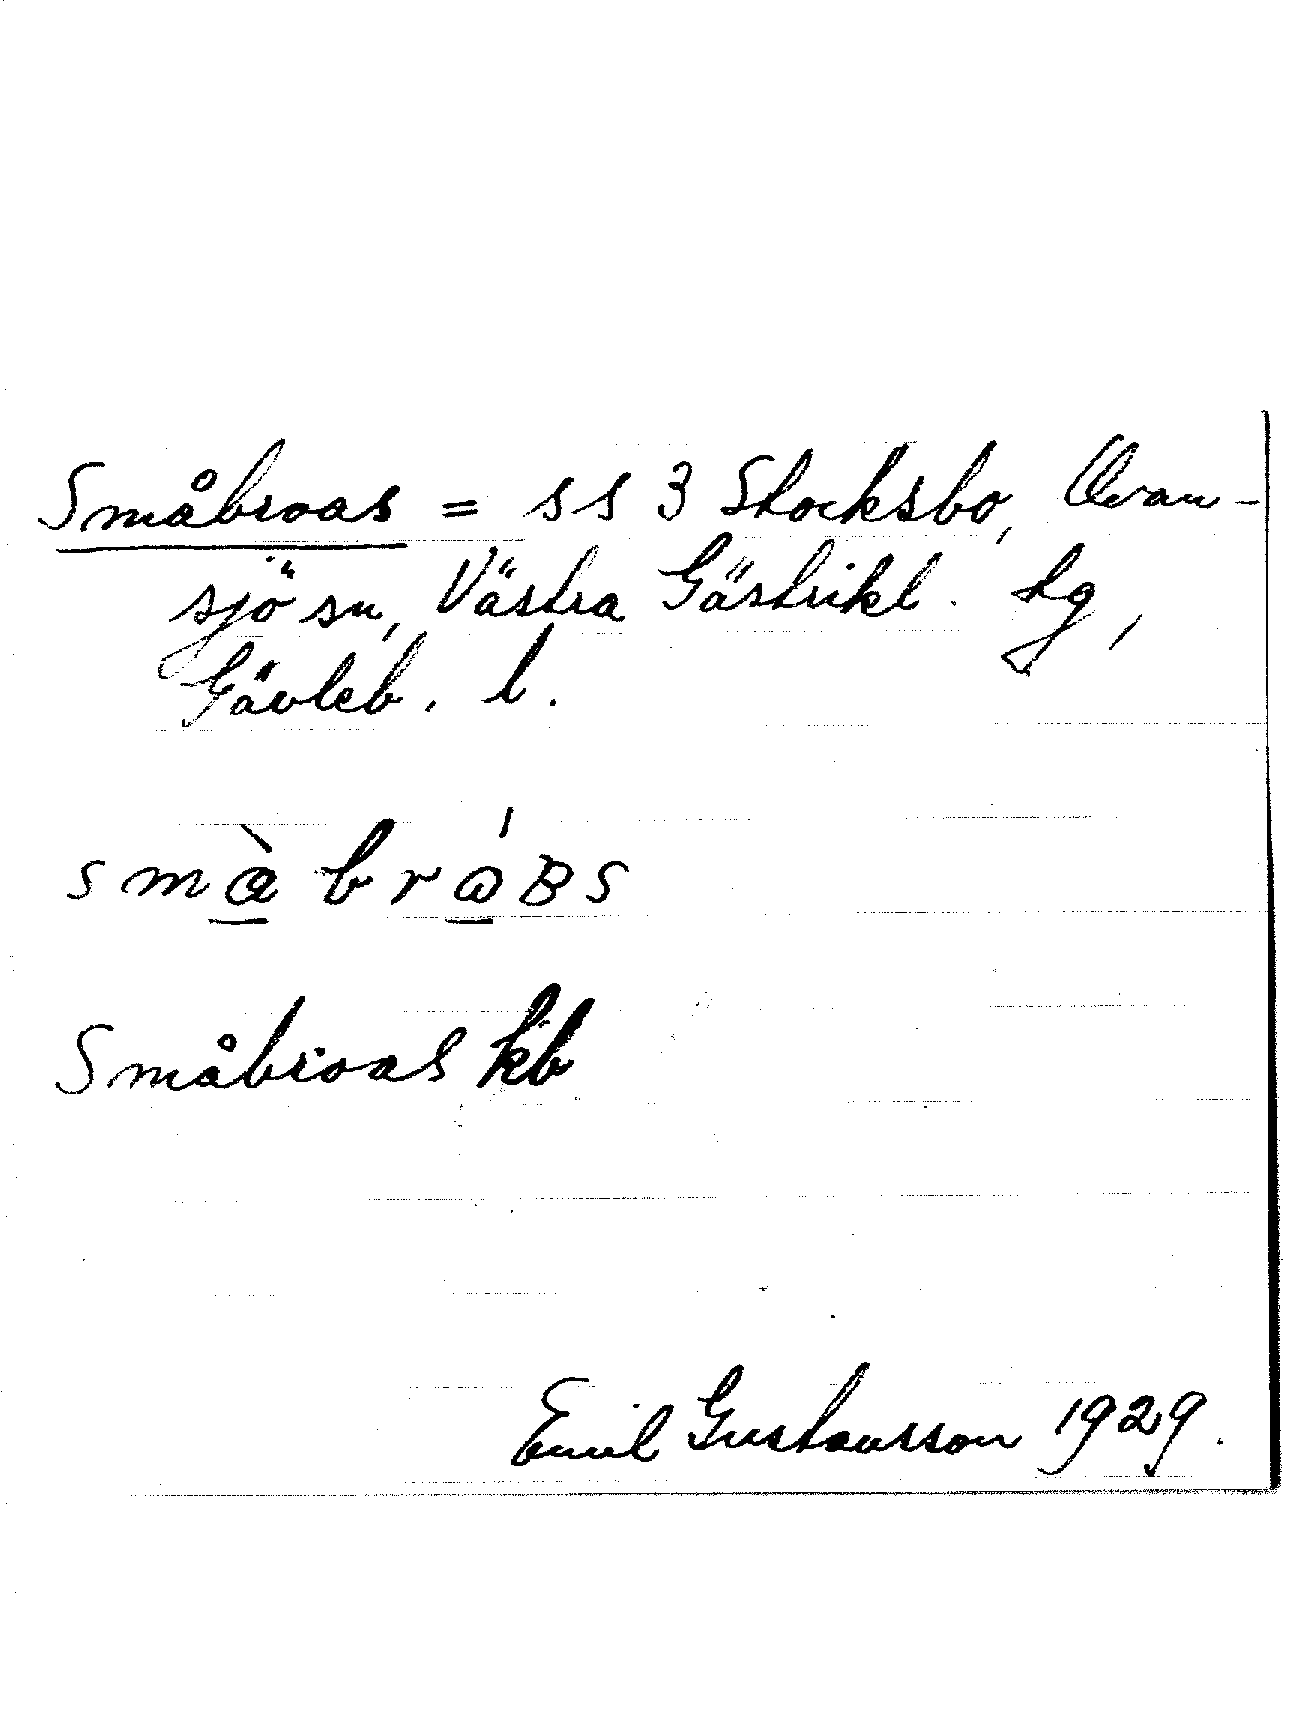 Småbroas = ss 3 Stocksbo, Ovan-
sjö sn, Västra Gästrikl. tg,
Gävleb. l.
Småbroas kb
Emil Gustavsson 1929.